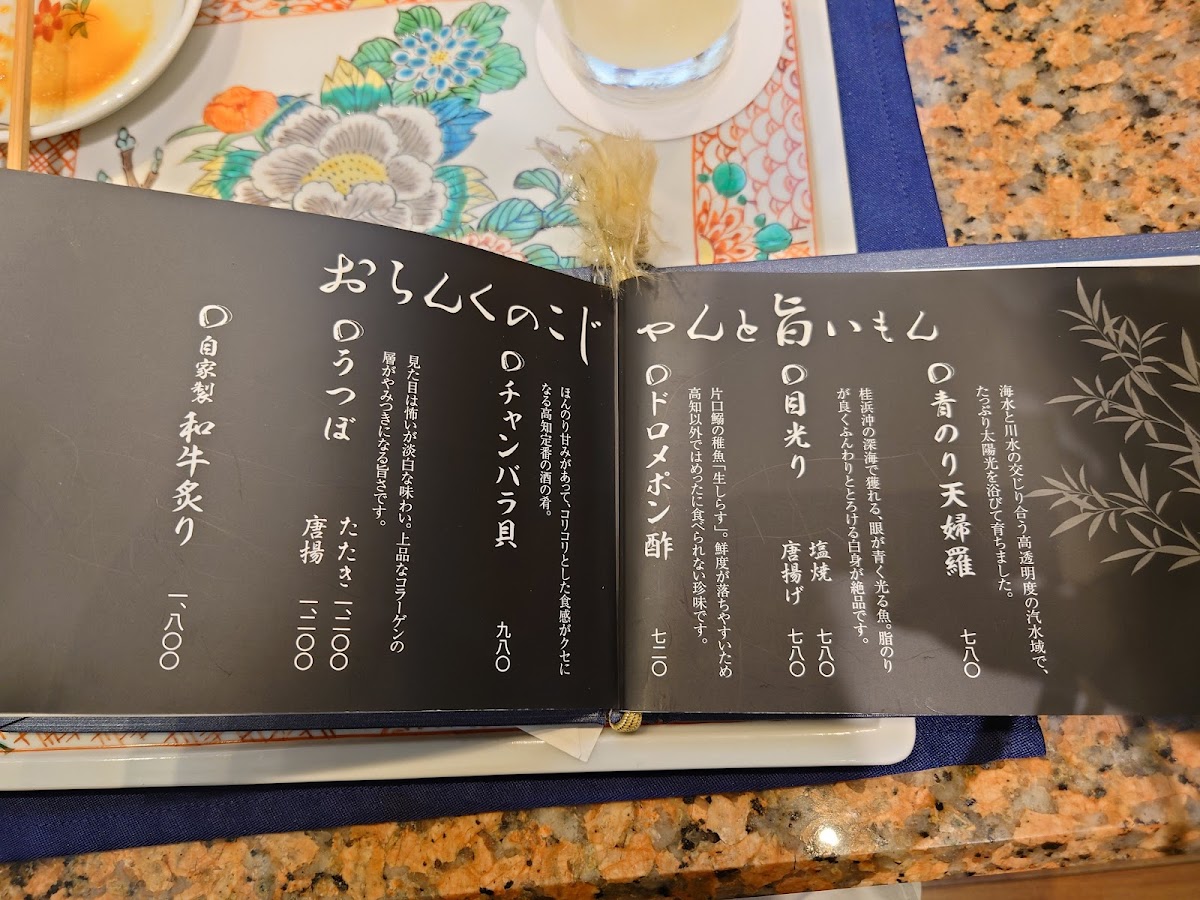 おらんくのこじゃんと旨いもん
青のり天婦羅 七八〇
海水と川水の交じり合う高透明度の汽水域で、
たっぷり太陽光を浴びて育ちました。
目光り
塩焼 七八〇
唐揚げ 七八〇
桂浜沖の深海で獲れる、眼が青く光る魚。脂のり
が良くふんわりととろける白身が絶品です。
ドロメポン酢 七二〇
片口鰯の稚魚「生しらす」。鮮度が落ちやすいため
高知以外ではめったに食べられない珍味です。
チャンバラ貝 九八〇
ほんのり甘みがあって、コリコリとした食感がクセに
なる高知定番の酒の肴。
うつぼ
たたき 一、二〇〇
唐揚 一、二〇〇
見た目は怖いが淡白な味わい。上品なコラーゲンの
層がやみつきになる旨さです。
自家製 和牛炙り 一、八〇〇